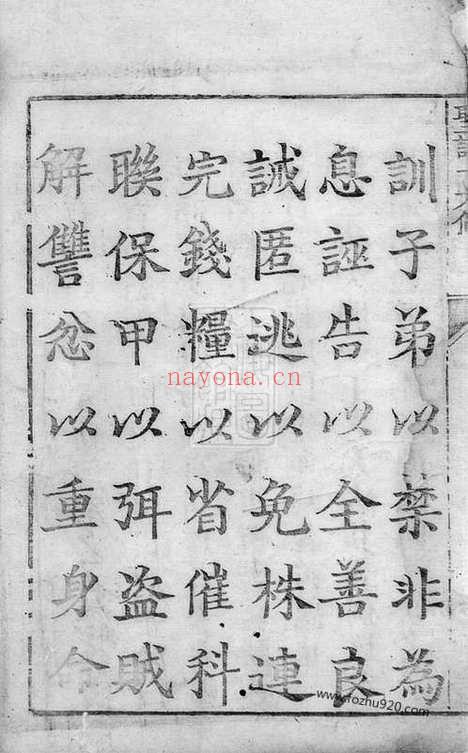 訓子弟以禁非為
息誣告以全善良
誡匿逃以免株連
完錢糧以省催科
聯保甲以弭盜賊
解讐忿以重身命
nayona.cn
www.fozhu920.com